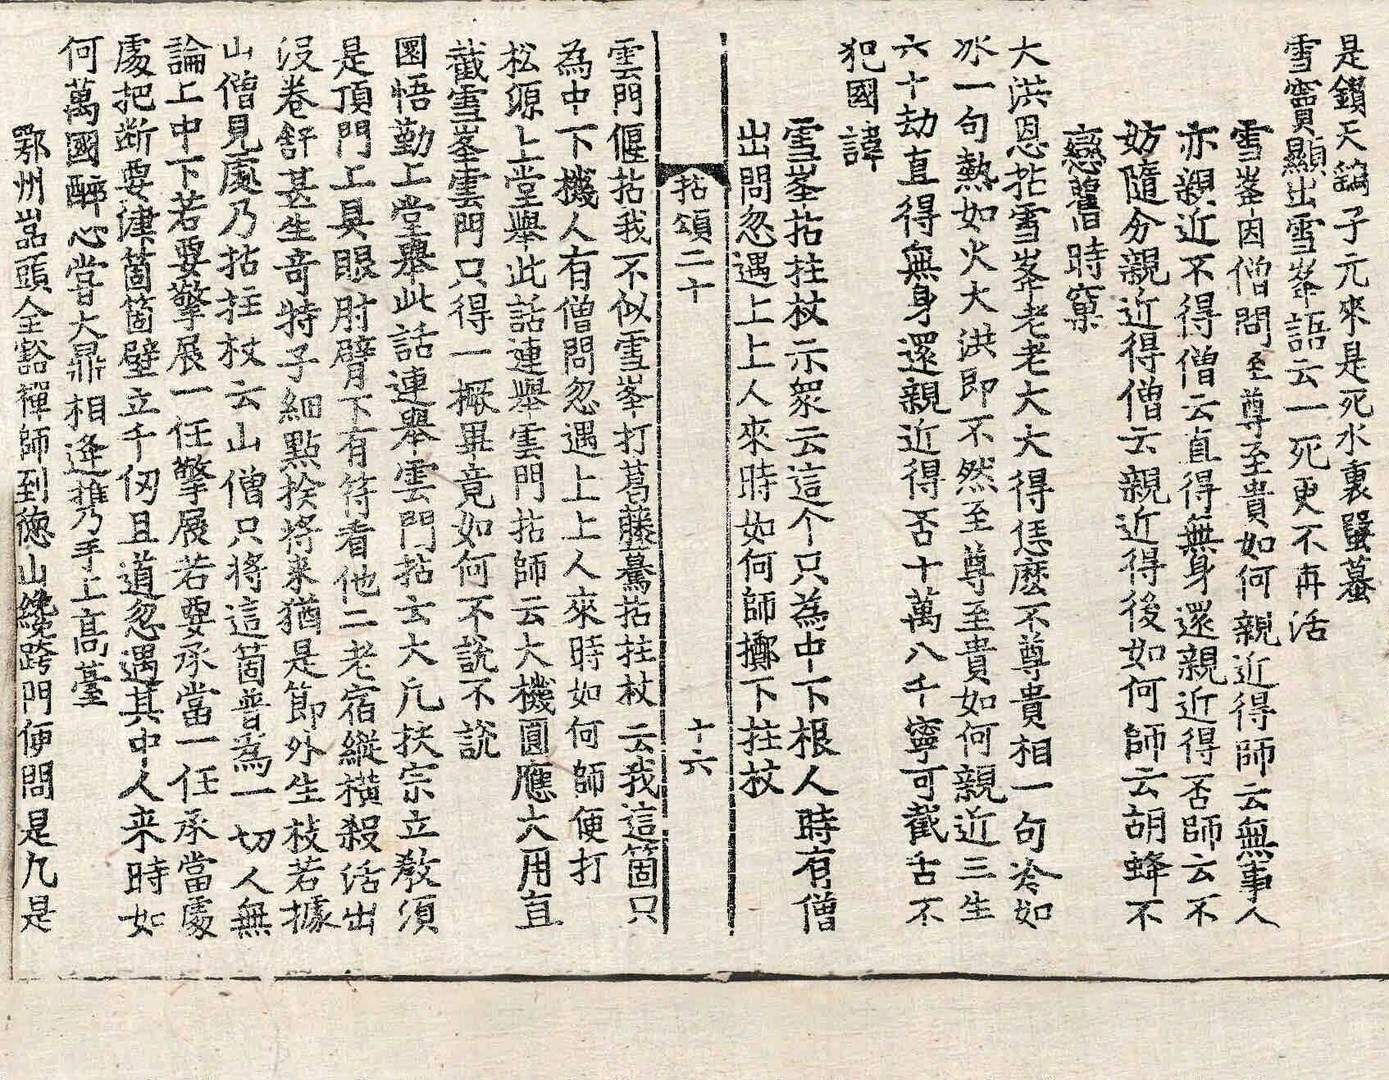 是鑽天鷂子元來是死水裏蟲蟇
雪竇顯出雪峯語云一死更不再活
雪峯因僧問至尊至貴如何親近得師云無事人
亦親近不得僧云直得無身還親近得否師云不
妨隨分親近得僧云親近得後如何師云胡蜂不
戀舊時窠
大洪恩拈雪峯老老大大得恁麽不尊貴相一句冷如
氷一句熱如火大洪即不然至尊至貴如何親近三生
六十劫直得無身還親近得否十萬八千寧可截舌不
犯國諱
雪峯拈拄杖示衆云這个只為中下根人時有僧
出問忽遇上上人來時如何師擲下拄杖
拈頌二十 十六
雲門偃拈我不似雪峯打葛藤驀拈拄杖云我這箇只
為中下機人有僧問忽遇上上人來時如何師便打
松源上堂舉此話連舉雲門拈師云大機圓應大用直
截雪峯雲門只得一橛畢竟如何不說不說
圜悟勤上堂舉此話連舉雲門拈云大凡扶宗立教須
是頂門上具眼肘臂下有符看他二老宿縱橫殺活出
没卷舒甚生奇特子細點撿將來猶是節外生枝若據
山僧見處乃拈拄杖云山僧只將這箇普為一切人無
論上中下若要擎展一任擎展若要承當一任承當處
處把断要津箇箇壁立千仞且道忽遇其中人来時如
何萬國醉心甞大鼎相逢携手上高臺
鄂州嵓頭全豁禪師到德山纔跨門便問是凡是